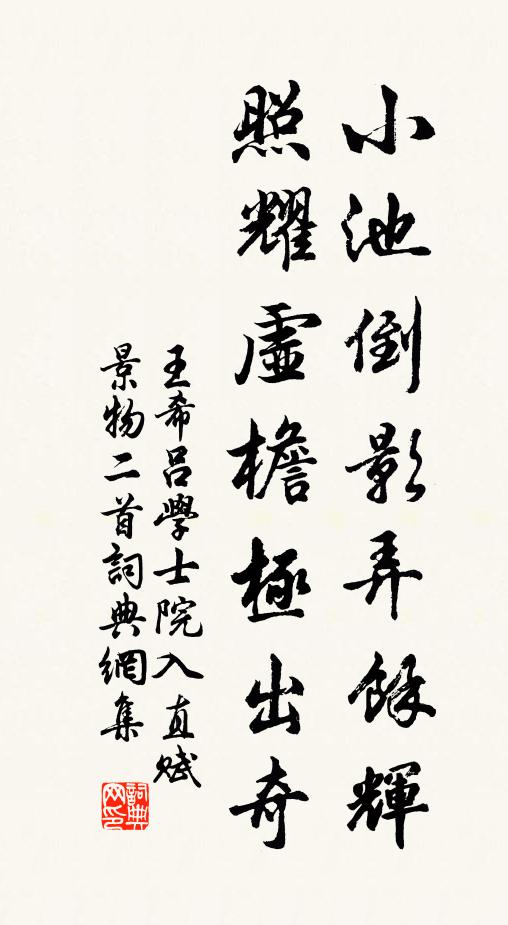 小池倒影弄餘輝
照耀虛檐極出奇
王希呂學士院入直賦
景物二首詞典網集
詞典网印